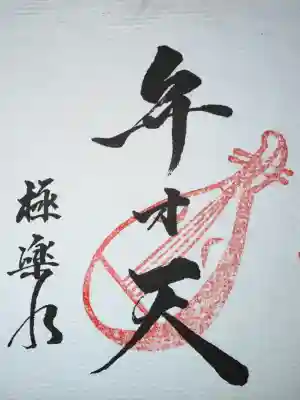 弁才天
極楽水